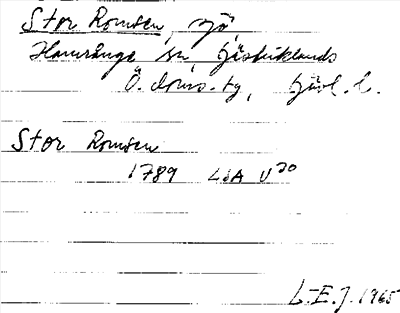 Stor Romsen, sjö,
Hamrånge sn, Gästriklands
Ö. doms.-tg, Gävl. l.
Stor Romsen
1789 LSA U 30
L-E. J. 1965